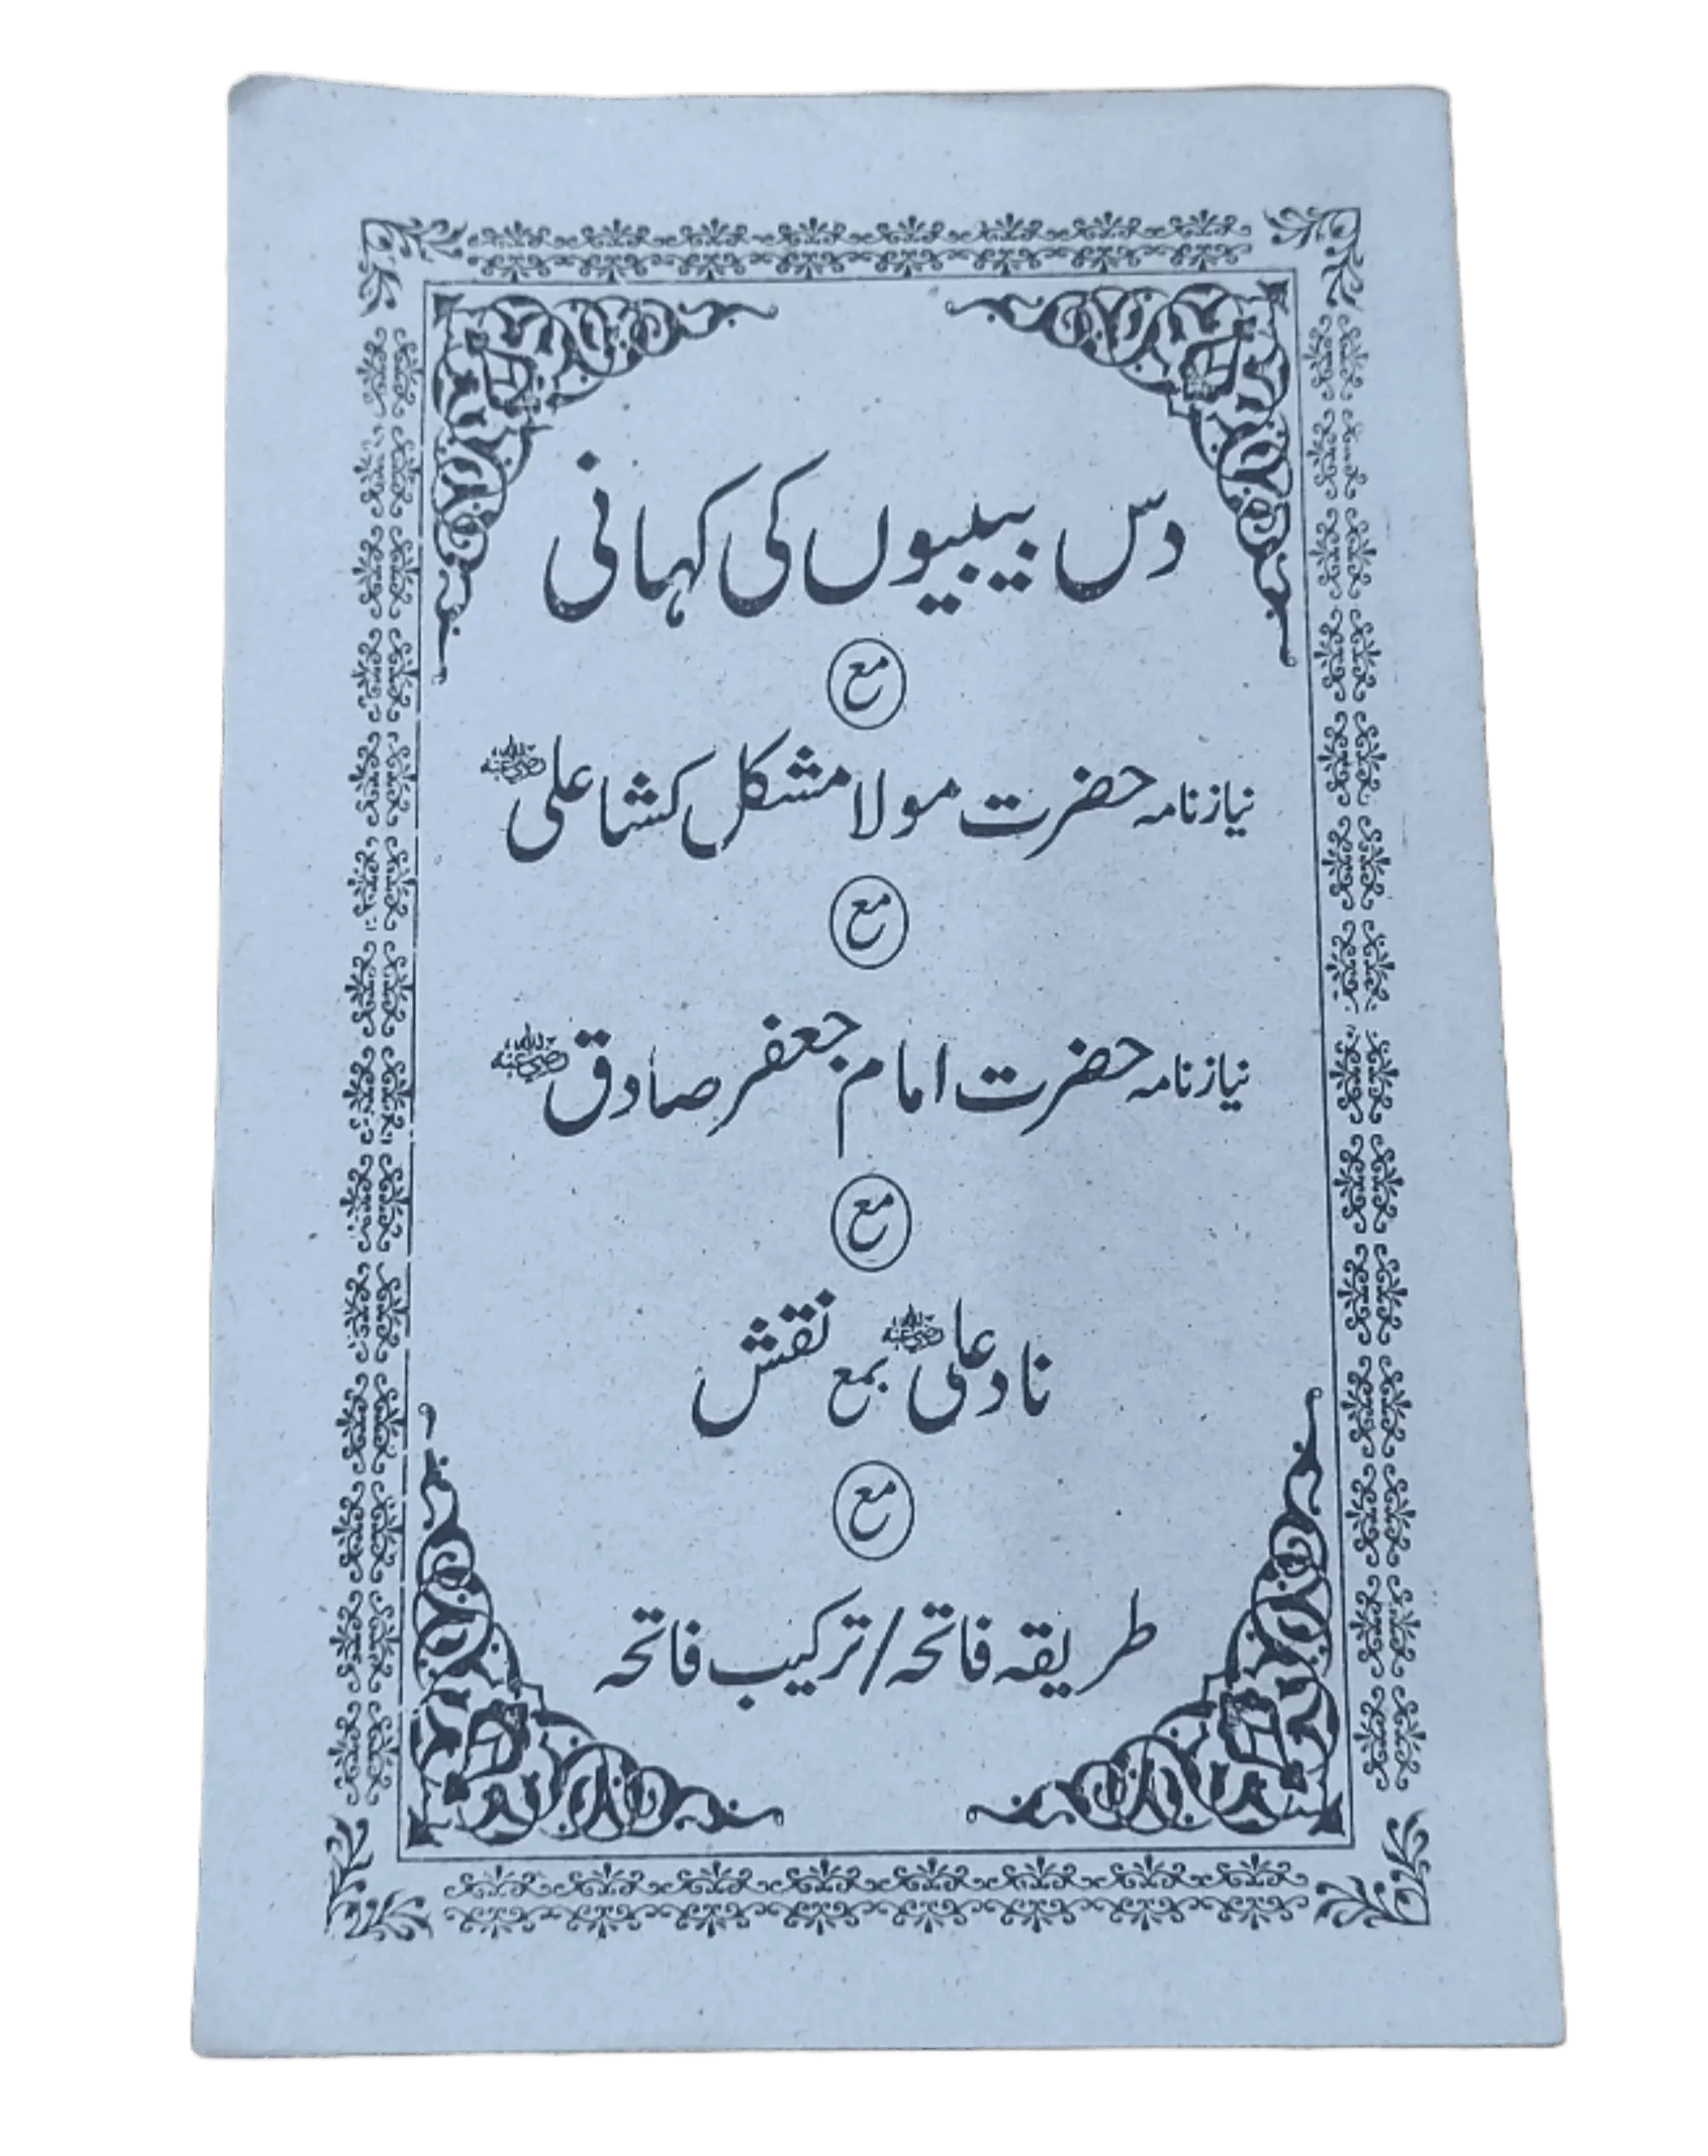 دس بیبیوں کی کہانی
مع
نیاز نامہ حضرت مولا مشکل کشا علی رضی اللہ عنہ
مع
نیاز نامہ حضرت امام جعفر صادق رضی اللہ عنہ
مع
ناد علی رضی اللہ عنہ بمع نقش
مع
طریقہ فاتحہ / ترکیب فاتحہ